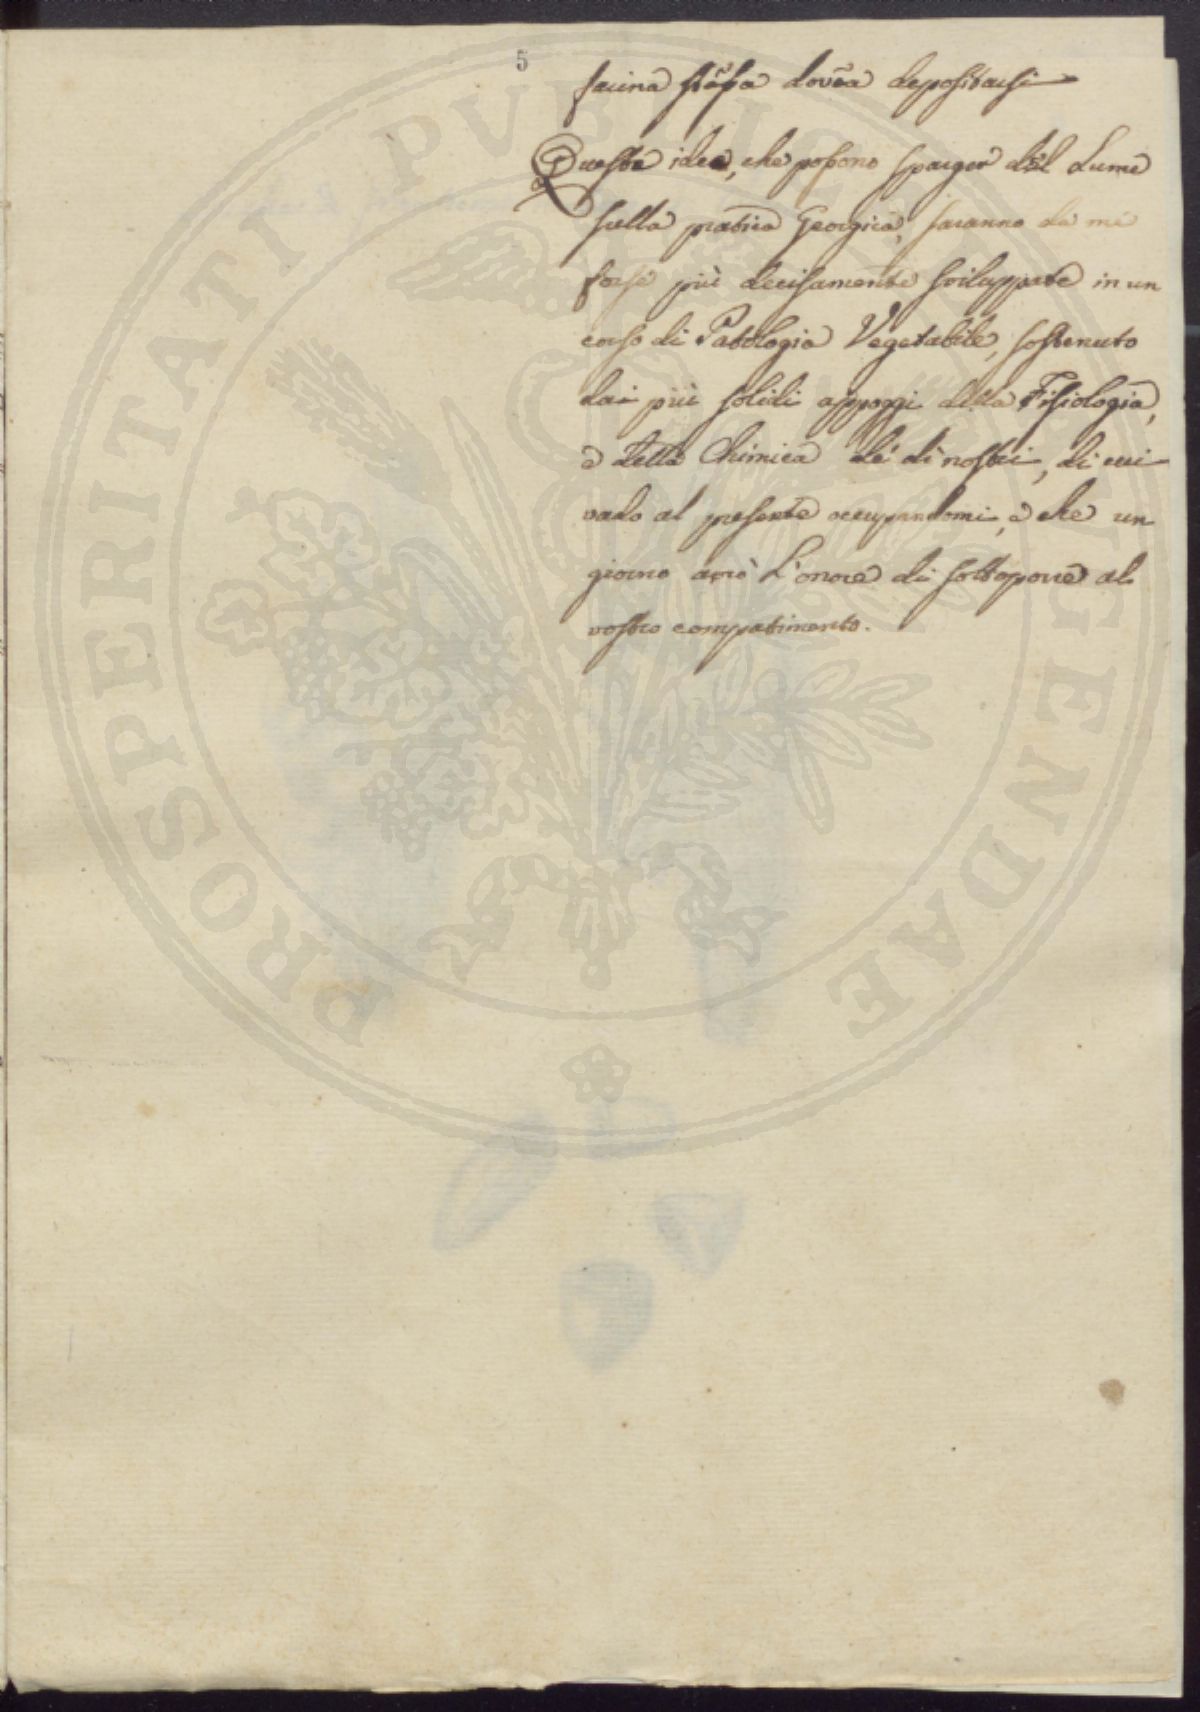 5
farina stessa dovea depositarsi
Queste idee, che possono sparger del Lume
sulla pratica Georgica, saranno da me
forse più decisamente sviluppate in un
corso di Patologia Vegetabile, sostenuto
dai più solidi appoggi della Fisiologia,
e della Chimica de' dì nostri, di cui
vado al presente occupandomi, e che un
giorno avrò L'onore di sottoporre al
vostro compatimento.
PROSPERITATI PUBLICAE AUGENDAE